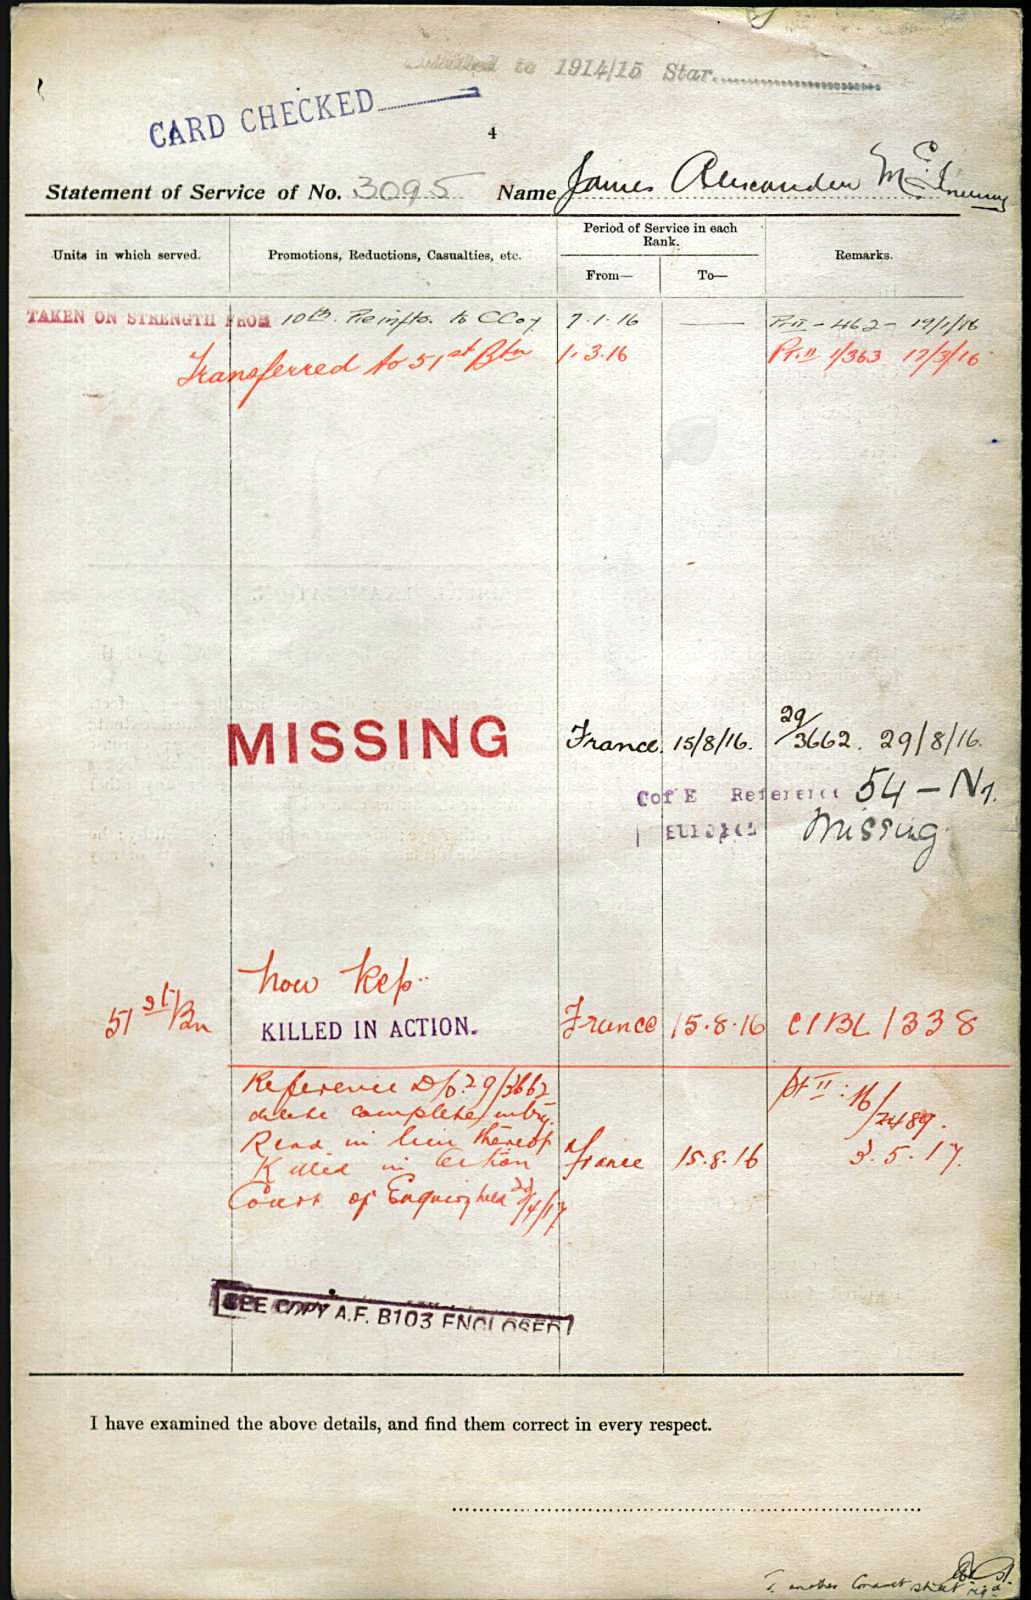 to 1914/15 Star
CARD CHECKED
4
Statement of Service of No. 3095 Name James Alexander McInerney
Units in which served. Promotions, Reductions, Casualties, etc. Period of Service in each Rank. From— To— Remarks.
TAKEN ON STRENGTH FROM 10th Reinfts. to C Coy 7.1.16 Pt II - 462 - 19/1/16
Transferred to 51st Btn 1.3.16 Pt. II 1/363 17/3/16
MISSING France. 15/8/16. 29/3662. 29/8/16.
C of E Reference 54 - N1.
Missing
now rep
51st/Bn KILLED IN ACTION. France 15.8.16 C/BL 1338
Reference D/o. 29/3662
delete complete entry.
Read in lieu thereof
Killed in Action France 15.8.16
Court of Enquiry held /4/17
pt II: 16/2489.
3.5.17.
SEE COPY A.F. B103 ENCLOSED
I have examined the above details, and find them correct in every respect.
another Consult sheet